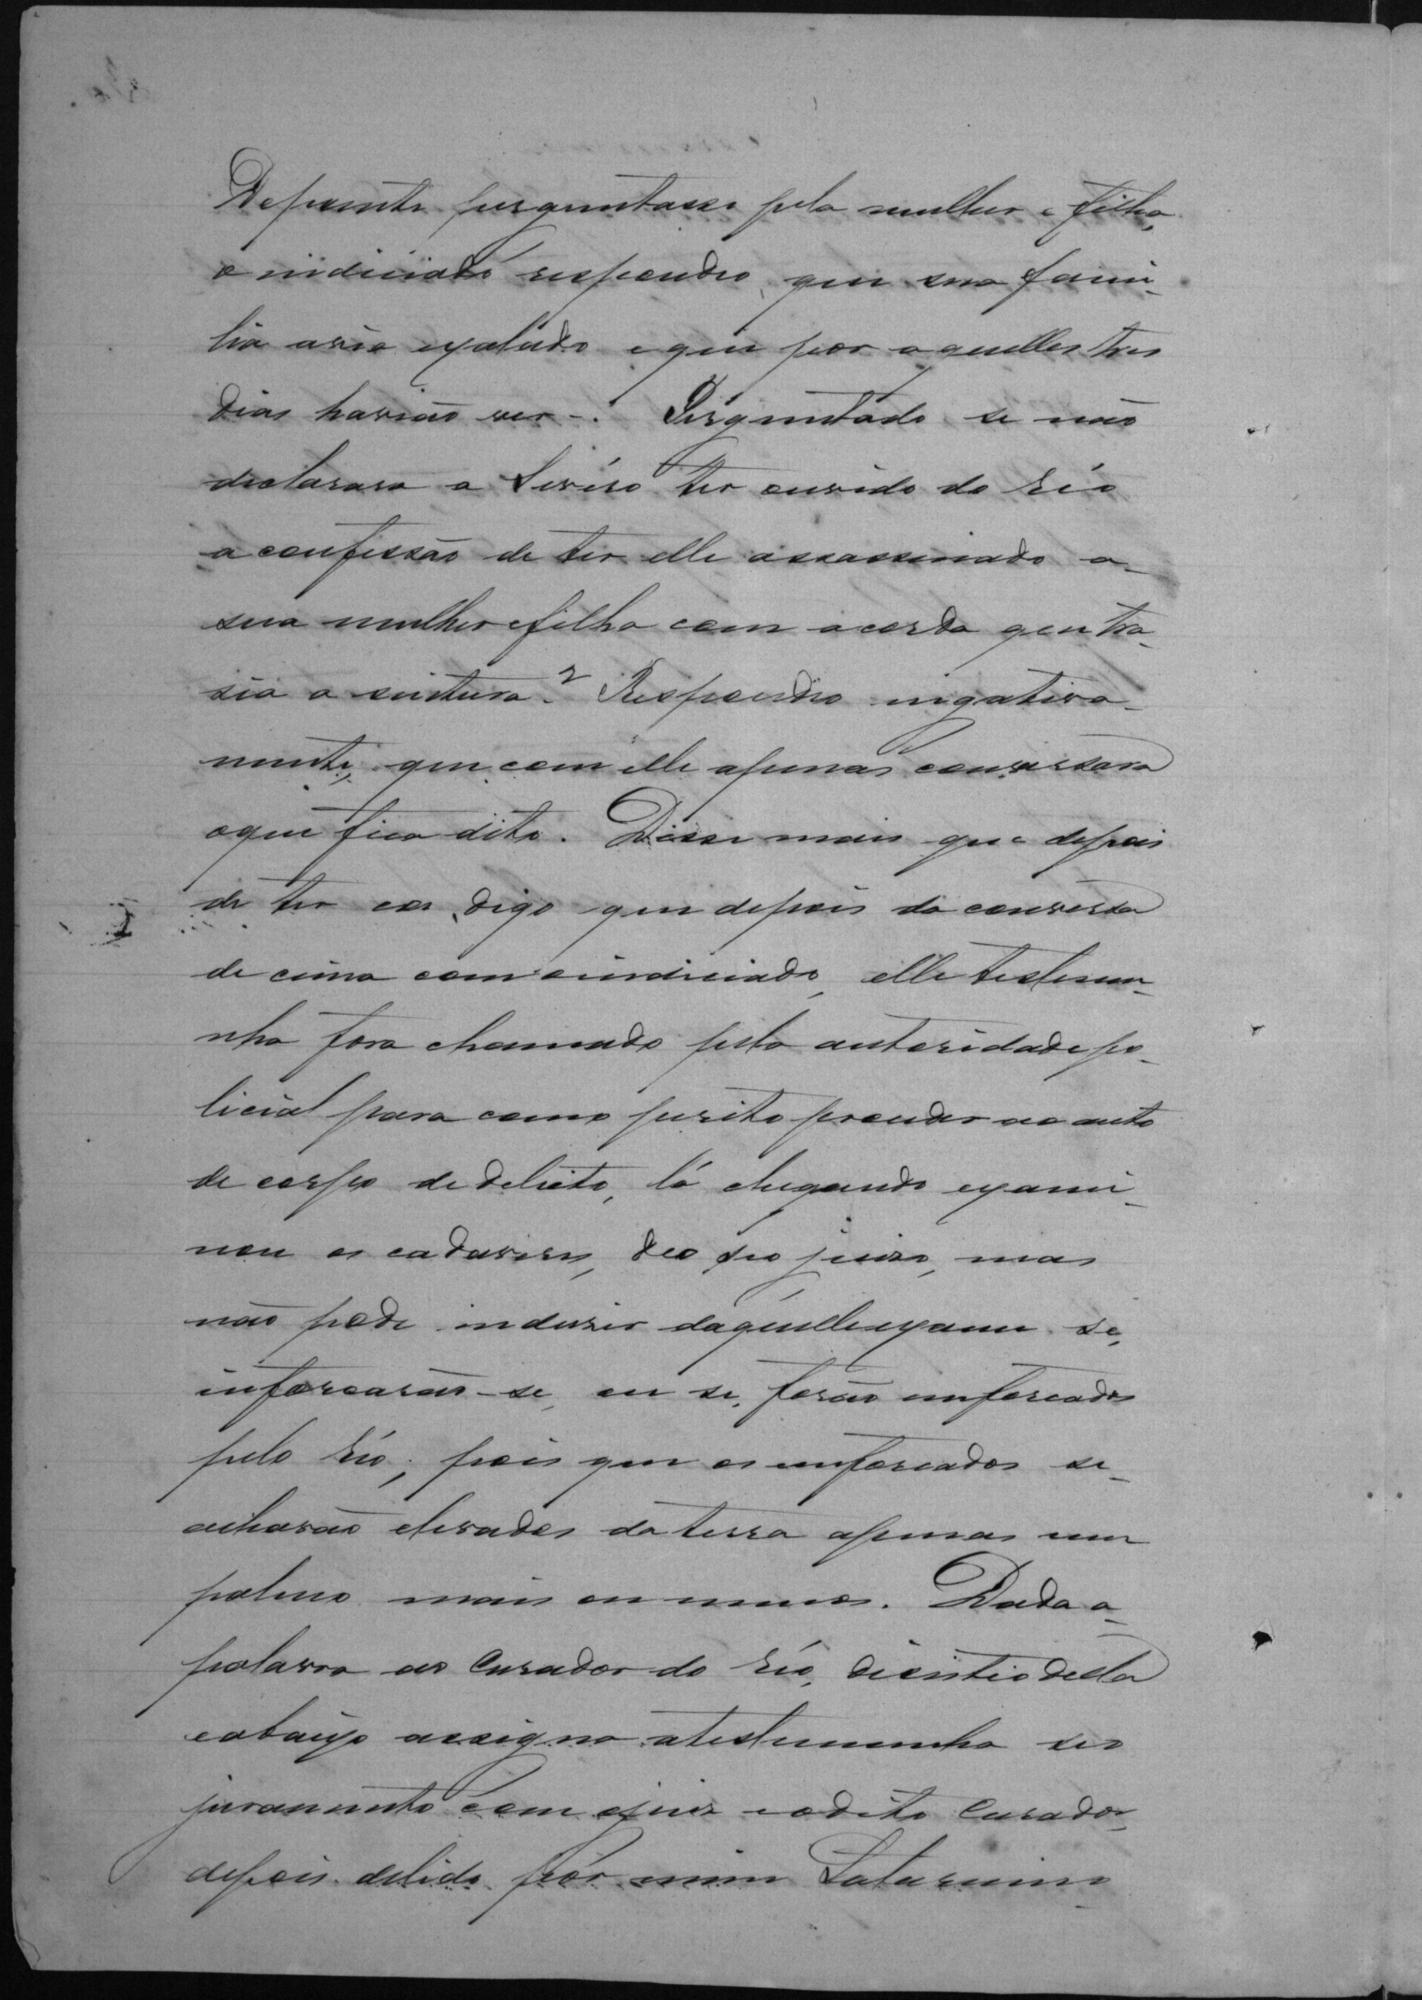 Depuente perguntasse pela mulher e filha,
o indiciado respondeo, que sua fami-
lia avia exalado e que por aquelles tres
dias havião ver -. Perguntado se não
declarara a Livíro ter ouvido do réo
a confissão de ter elle assassinado a-
sua mulher e filha com a corda que tra-
sia a sintura? Respondeo negativa-
mente, que com elle apenas conversara
o que fica dito. Disse mais que depois
de ter digo que depois da conversa
de cima com o indiciado, elle testemu-
nha fora chamado pela autoridade po-
licial para como perito proceder ao auto
de corpo de delicto, lá chegando exami-
nou os cadaveres, deo seo juizo, mas
não pode indusir daquelle exame se,
inforcarão-se, ou se, forão emforcados
pelo réo, pois que os emforcados se-
acharão elevados da terra apenas um
palmo mais ou menos. Dada a-
palavra ao Curador do réo, disistio della
e abaixo assigna a testemunha seo
juramento com o juiz e o dito Curador,
depois de lido por mim Saturnino